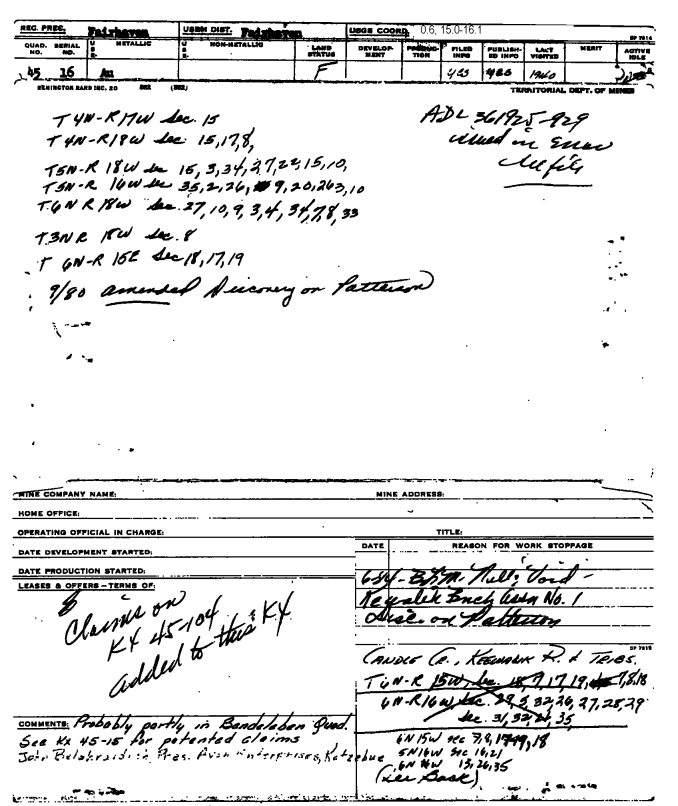 REC. PREC. Fairhaven USBM DIST. Fairhaven USGS COORD. 0.6, 15.0-16.1
SP 7814
QUAD. NO. SERIAL NO. METALLIC NON-METALLIC LAND STATUS DEVELOPMENT PRODUCTION FILED INFO PUBLISHED INFO LAST VISITED MERIT ACTIVE IDLE
45 16 Au F 423 1940
REMINGTON RAND INC. 20 TERRITORIAL DEPT. OF MINES
T4N-R17W Sec. 15
T4N-R18W Sec 15,17,8,
T5N-R 18W Sec 15, 3,34,27,22,15,10,
T5N-R 16W Sec 35,2,26, 9,20,263,10
T.6N R18W Sec. 27,10,9,3,4,34,7,8,33
T.3N R 18W Sec. 8
T 6N-R 15E Sec 18,17,19
9/80 amended Discovery on Patterson
ADL 361925-929
issued in Error
MINE COMPANY NAME: MINE ADDRESS:
HOME OFFICE:
OPERATING OFFICIAL IN CHARGE: TITLE:
DATE DEVELOPMENT STARTED:
DATE PRODUCTION STARTED:
LEASES & OFFERS-TERMS OF:
Claims on
KX 45-104
added to this KX
DATE REASON FOR WORK STOPPAGE
Null & Void -
Keewalik Bench Assn No. 1
Disc. on Patterson
SP 7815
CANDLE CR., KEEWALIK R. & TRIBS.
T6N-R 15W, Sec. 18,9,17,19, 7,8,18
6N-R16W Sec. 29,5,32,26,27,28,29
Sec. 31,32, 35,
6N 15W sec 7,8, 18
5N16W sec 16,21
6N 13,26,35
(see Back)
COMMENTS: Probably partly in Bendeleben Quad.
See KX 45-15 for patented claims
John Pres. Enterprises, Kotzebue